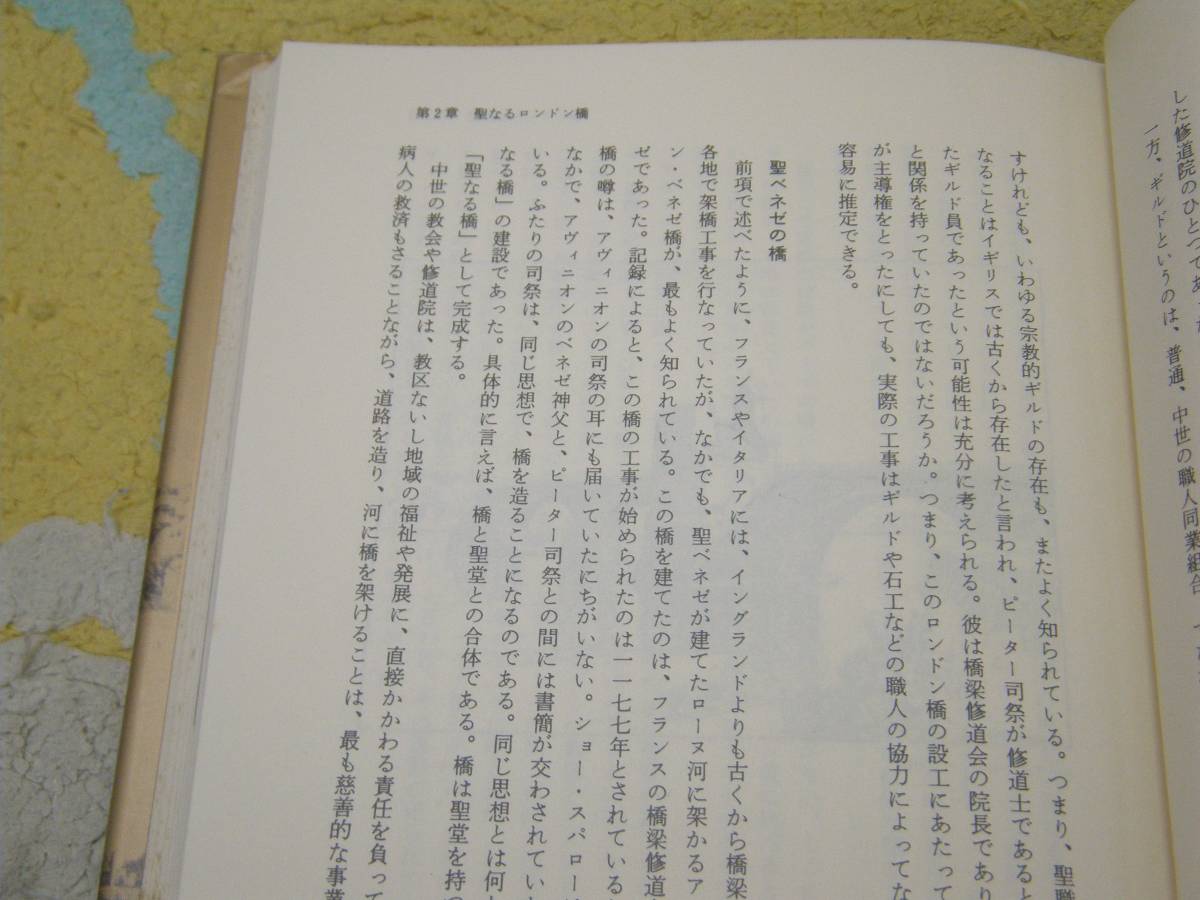 した修道院のひとつであ
一方、ギルドというのは、普通、中世の職人同業組合
第2章　聖なるロンドン橋
すけれども、いわゆる宗教的ギルドの存在も、またよく知られている。つまり、聖職
なることはイギリスでは古くから存在したと言われ、ピーター司祭が修道士であると
たギルド員であったという可能性は充分に考えられる。彼は橋梁修道会の院長であり
と関係を持っていたのではないだろうか。つまり、このロンドン橋の設工にあたって
が主導権をとったにしても、実際の工事はギルドや石工などの職人の協力によってな
容易に推定できる。
聖ベネゼの橋
前項で述べたように、フランスやイタリアには、イングランドよりも古くから橋梁
各地で架橋工事を行なっていたが、なかでも、聖ベネゼが建てたローヌ河に架かるア
ン・ベネゼ橋が、最もよく知られている。この橋を建てたのは、フランスの橋梁修道
ゼであった。記録によると、この橋の工事が始められたのは一一七七年とされている
橋の噂は、アヴィニオンの司祭の耳にも届いていたにちがいない。ショー・スパロー
なかで、アヴィニオンのベネゼ神父と、ピーター司祭との間には書簡が交わされてい
いる。ふたりの司祭は、同じ思想で、橋を造ることになるのである。同じ思想とは何
なる橋」の建設であった。具体的に言えば、橋と聖堂との合体である。橋は聖堂を持
「聖なる橋」として完成する。
中世の教会や修道院は、教区ないし地域の福祉や発展に、直接かかわる責任を負って
病人の救済もさることながら、道路を造り、河に橋を架けることは、最も慈善的な事業